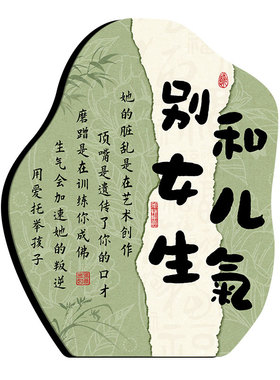 别和女儿生氣
她的脏乱是在艺术创作
顶嘴是遗传了你的口才
磨蹭是在训练你成佛
生气会加速她的叛逆
用爱托举孩子